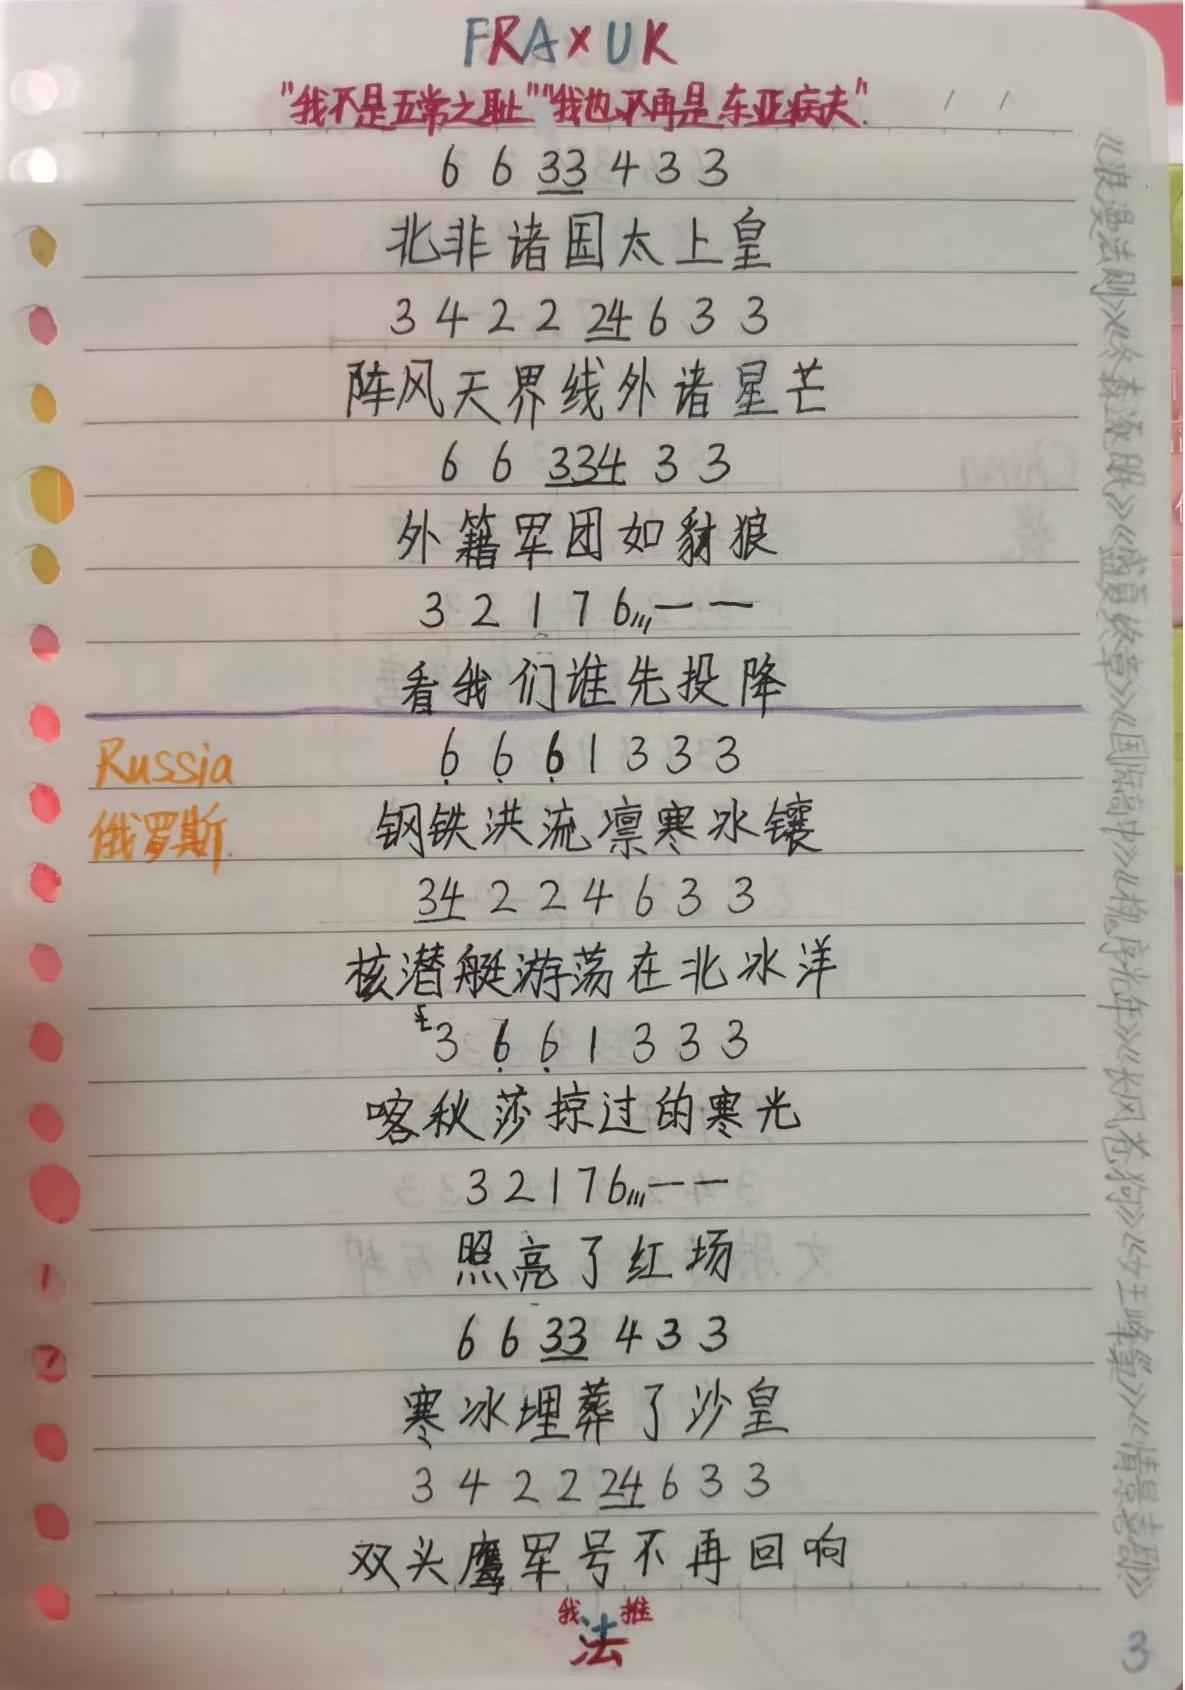 FRA×UK
"我不是五常之耻""我也不再是东亚病夫".
6 6 33 4 3 3
北非诸国太上皇
3 4 2 2 24 6 3 3
阵风天界线外诸星芒
6 6 334 3 3
外籍军团如豺狼
3 2 1 7 6,,, — —
看我们谁先投降
Russia
俄罗斯.
6 6 6 1 3 3 3
钢铁洪流凛寒冰镶
34 2 2 4 6 3 3
核潜艇游荡在北冰洋
3 6 6 1 3 3 3
喀秋莎掠过的寒光
3 2 1 7 6,,, — —
照亮了红场
6 6 33 4 3 3
寒冰埋葬了沙皇
3 4 2 2 24 6 3 3
双头鹰军号不再回响
我 推
法
《浪漫法则》《冬森逐眠》《盛夏终章》《国际高中》《槐序光年》《长风苍狗》《女王峰巢》《情景喜剧》
3